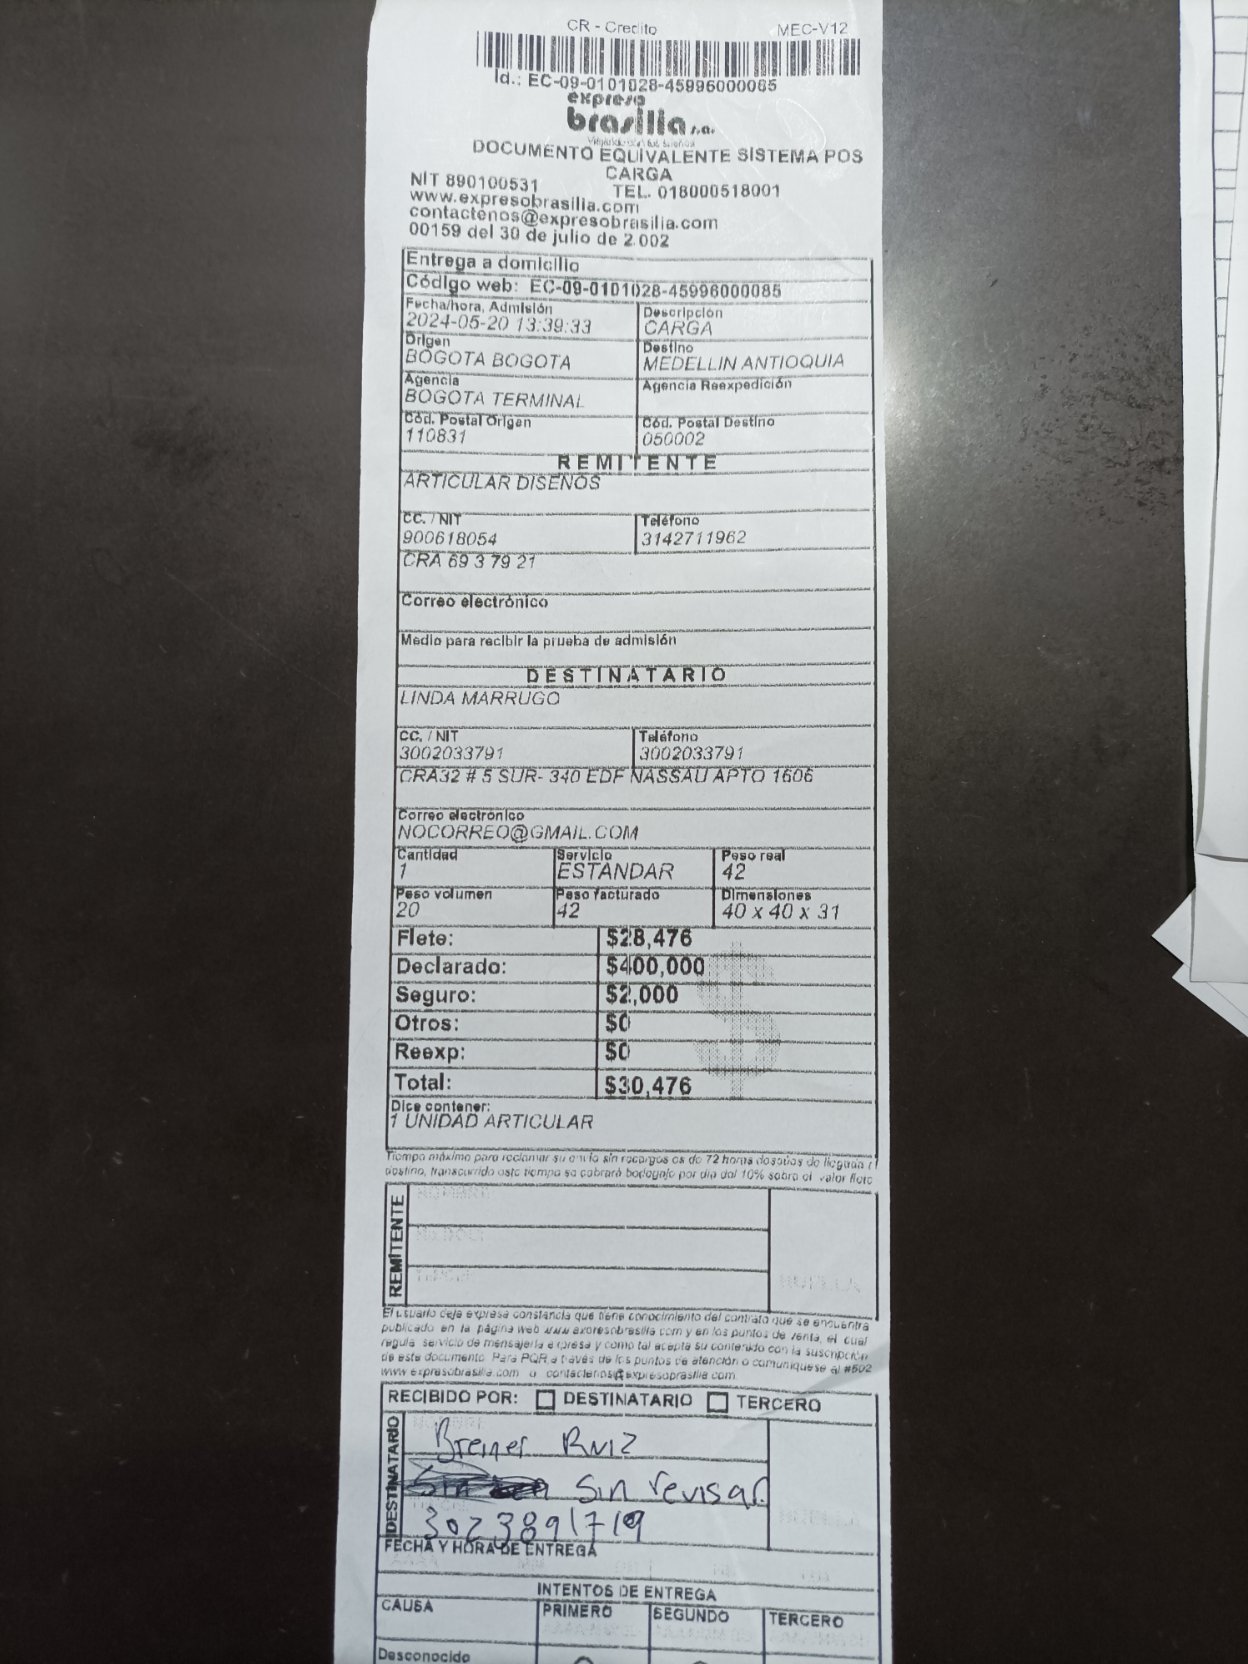 CR - Credito MEC-V12
Id.: EC-09-0101028-45996000085
expreso
brasilia s.a.
DOCUMENTO EQUIVALENTE SISTEMA POS
CARGA
NIT 890100531 TEL. 018000518001
www.expresobrasilia.com
contactenos@expresobrasilia.com
00159 del 30 de julio de 2.002
Entrega a domicilio
Código web: EC-09-0101028-45996000085
Fecha/hora, Admisión Descripción
2024-05-20 13:39:33 CARGA
Origen Destino
BOGOTA BOGOTA MEDELLIN ANTIOQUIA
Agencia Agencia Reexpedición
BOGOTA TERMINAL
Cód. Postal Origen Cód. Postal Destino
110831 050002
REMITENTE
ARTICULAR DISEÑOS
CC. / NIT Teléfono
900618054 3142711962
CRA 69 3 79 21
Correo electrónico
Medio para recibir la prueba de admisión
DESTINATARIO
LINDA MARRUGO
CC. / NIT Teléfono
3002033791 3002033791
CRA32 # 5 SUR- 340 EDF NASSAU APTO 1606
Correo electrónico
NOCORREO@GMAIL.COM
Cantidad Servicio Peso real
1 ESTANDAR 42
Peso volumen Peso facturado Dimensiones
20 42 40 x 40 x 31
Flete: $28,476
Declarado: $400,000
Seguro: $2,000
Otros: $0
Reexp: $0
Total: $30,476
Dice contener:
1 UNIDAD ARTICULAR
Tiempo máximo para reclamar su envío sin recargos es de 72 horas después de llegada
destino, transcurrido este tiempo se cobrará bodegaje por día del 10% sobre el valor flete
REMITENTE
NOMBRE
HUELLA
El usuario deja expresa constancia que tiene conocimiento del contrato que se encuentra
publicado en la página web www.expresobrasilia.com y en los puntos de venta, el cual
regula servicio de mensajería expresa y como tal acepta su contenido con la suscripción
de este documento. Para PQR a través de los puntos de atención o comuníquese al #502
www.expresobrasilia.com o contactenos@expresobrasilia.com.
RECIBIDO POR: DESTINATARIO TERCERO
DESTINATARIO
Breiner Ruiz
Sin revisar.
3023891719
FECHA Y HORA DE ENTREGA
INTENTOS DE ENTREGA
CAUSA PRIMERO SEGUNDO TERCERO
Desconocido